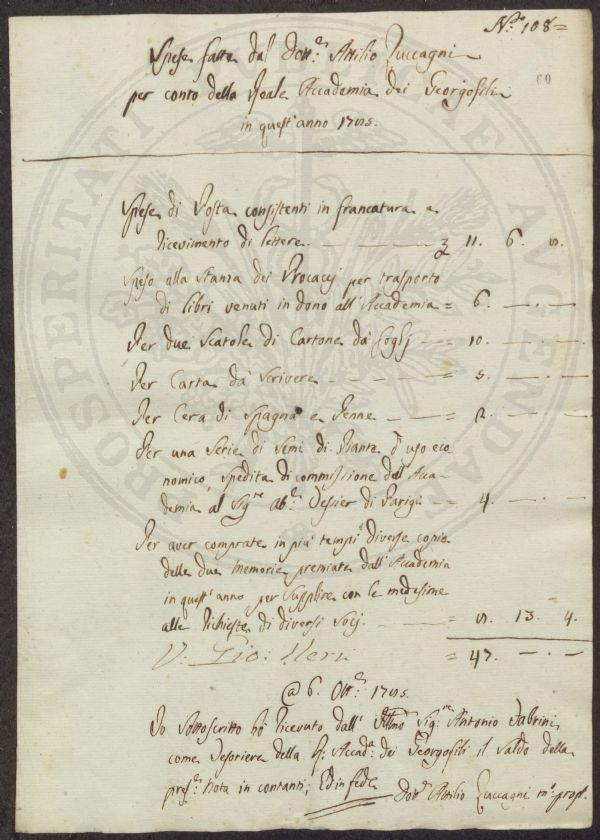 N.° 108=
60
Spese fatte dal Dott.re Attilio Zuccagni
per conto della Reale Accademia dei Georgofili
in quest'anno 1785.
Spese di Posta consistenti in francatura e
ricevimento di lettere. — — — £ 11. 6. 8.
Speso alla Stanza dei Procaccj per trasporto
di libri venuti in dono all'Accademia = 6. —.—
Per due Scatole di Cartone da fogli — = 10. —.—
Per Carta da scrivere — — — = 5. —.—
Per Cera di Spagna e Penne — — = 2. —.—
Per una Serie di Semi di Piante d'uso eco
nomico spedita di commissione dell'Acca-
demia al Sig.re Ab.e Tessier di Parigi — = 4. —.—
Per aver comprate in più tempi diverse copie
delle due memorie premiate dall'Accademia
in quest'anno per supplire con le medesime
alle richieste di diversi Socj. — — = 8. 13. 4.
V: Gio: Neri = 47. —.—
@ 6. Ott.e 1785.
Io sottoscritto ho ricevuto dall' Illmo Sig.re Antonio Fabrini
come Tesoriere della R: Accad.a dei Georgofili il saldo della
pres.te nota in contanti; Ed in fede
Dott.e Attilio Zuccagni m.o prop.
PROSPERITATI PUBLICAE AUGENDAE